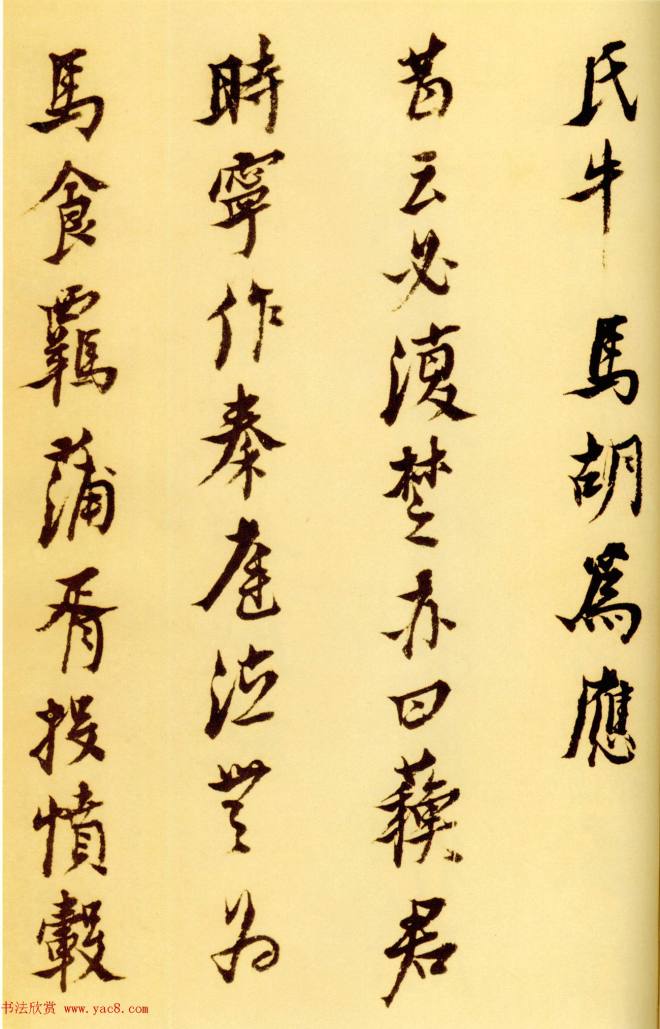 氏牛馬胡為應
昔云必復楚亦曰君
時寧作秦庭泣無為
馬食羈蒲胥投憤轂
书法欣赏 www.yac8.com